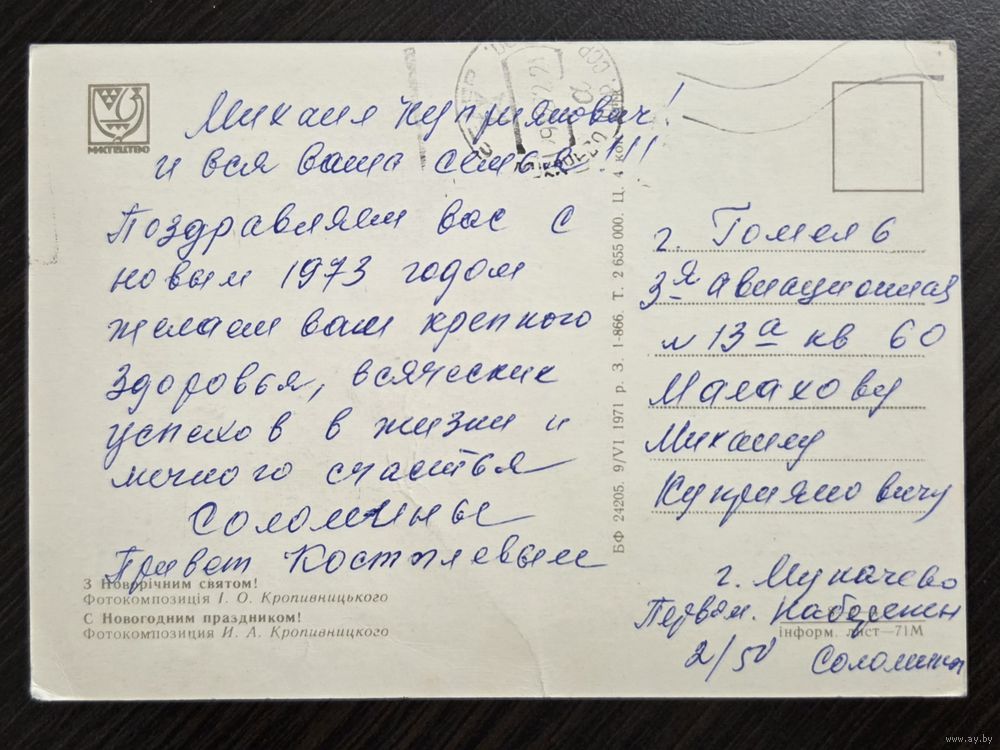 МИСТЕЦТВО
Михаил Куприянович!
и вся ваша семья!!!
Поздравляем вас с
новым 1973 годом
желаем вам крепкого
здоровья, всяческих
успехов в жизни и
много счастья
Соломины
Привет Костылевым
З Новорічним святом!
Фотокомпозиція І. О. Кропивницького
С Новогодним праздником!
Фотокомпозиция И. А. Кропивницкого
БФ 24205. 9/VI 1971 р. З. 1-866. Т. 2 655 000. Ц. 4 коп.
г. Гомель
3я авиационная
13а кв 60
Малахову
Михаилу
Куприяновичу
г. Мукачево
Набережн
інформ. лист—71М
2/50 Соломины
www.ay.by